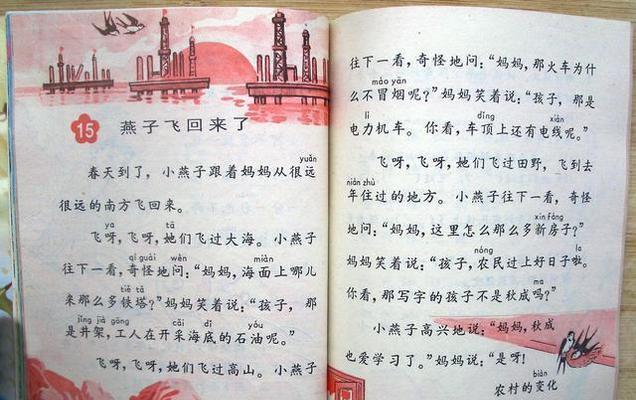 15 燕子飞回来了
yuǎn
春天到了，小燕子跟着妈妈从很远
很远的南方飞回来。
ya tā
飞呀，飞呀，她们飞过大海。小燕子
qí guài wèn miàn
往下一看，奇怪地问：“妈妈，海面上哪儿
tiě tǎ
来那么多铁塔？”妈妈笑着说：“孩子，那
jǐng jià gōng cǎi dǐ yóu
是井架，工人在开采海底的石油呢。”
飞呀，飞呀，她们飞过高山。小燕子
往下一看，奇怪地问：“妈妈，那火车为什
mào yān
么不冒烟呢？”妈妈笑着说：“孩子，那是
lì dǐng xiàn
电力机车。你看，车顶上还有电线呢。”
飞呀，飞呀，她们飞过田野，飞到去
nián zhù
年住过的地方。小燕子往下一看，奇怪
xīn fáng
地问：“妈妈，这里怎么那么多新房子？”
nóng la
妈妈笑着说：“孩子，农民过上好日子啦。
ma
你看，那写字的孩子不是秋成吗？”
小燕子高兴地说：“妈妈，秋成
也爱学习了。”妈妈说：“是呀！
biàn
农村的变化